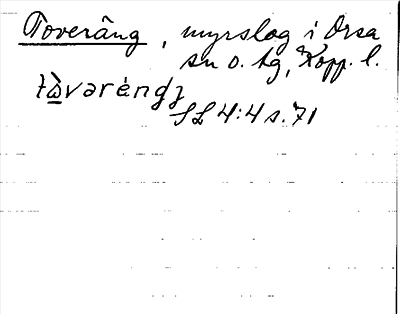 Toveräng, myrslog i Orsa
sn o. tg, Kopp. l.
tòvərèng
SL 4:4 s. 71